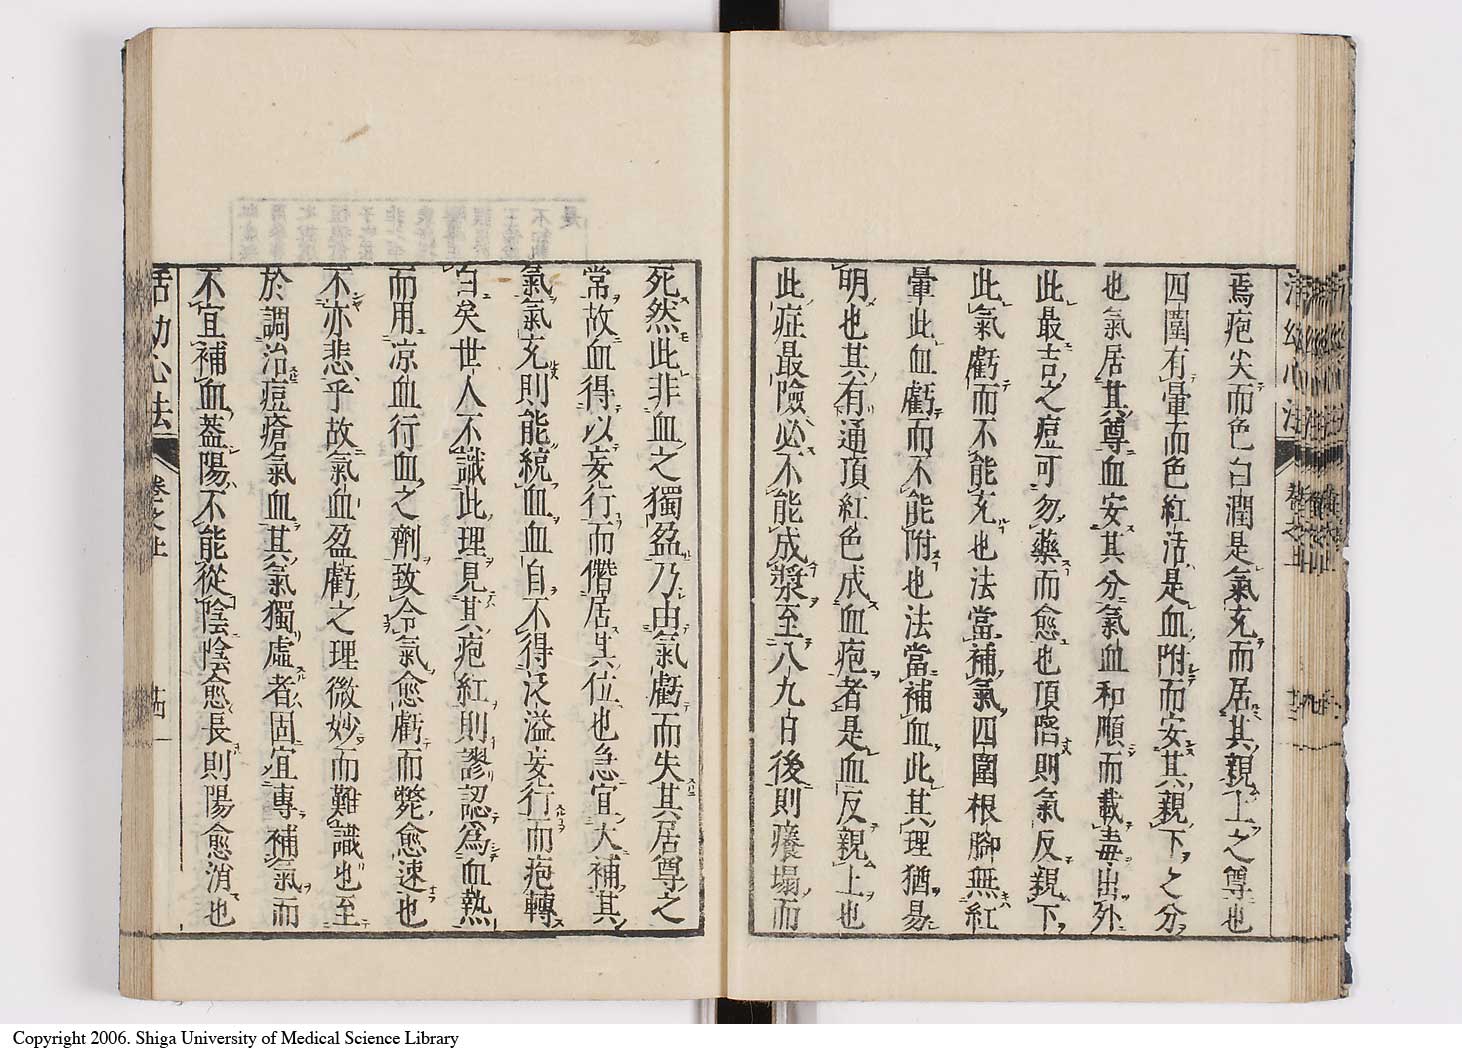 焉疱尖而色白潤是氣充而居其親上之尊也
四圍有暈而色紅活是血附而安其親下之分
也氣居其尊血安其分氣血和順而載毒出外
此最吉之痘可勿藥而愈也頂陷則氣反親下
此氣虧而不能充也法當補氣四圍根腳無紅
暈此血虧而不能附也法當補血此其理猶易
明也其有通頂紅色成血疱者是血反親上也
此症最險必不能成漿至八九日後則癢塌而
死然此非血之獨盈乃由氣虧而失其居尊之
常故血得以妄行而僭居其位也急宜大補其
氣氣充則能統血血自不得泛溢妄行而疱轉
白矣世人不識此理見其疱紅則謬認爲血熱
而用凉血行血之劑致令氣愈虧而斃愈速也
不亦悲乎故氣血盈虧之理微妙而難識也至
於調治痘瘡氣血其氣獨虛者固宜專補氣而
不宜補血葢陽不能從陰陰愈長則陽愈消也
活幼心法 卷之上 十四
Copyright 2006. Shiga University of Medical Science Library